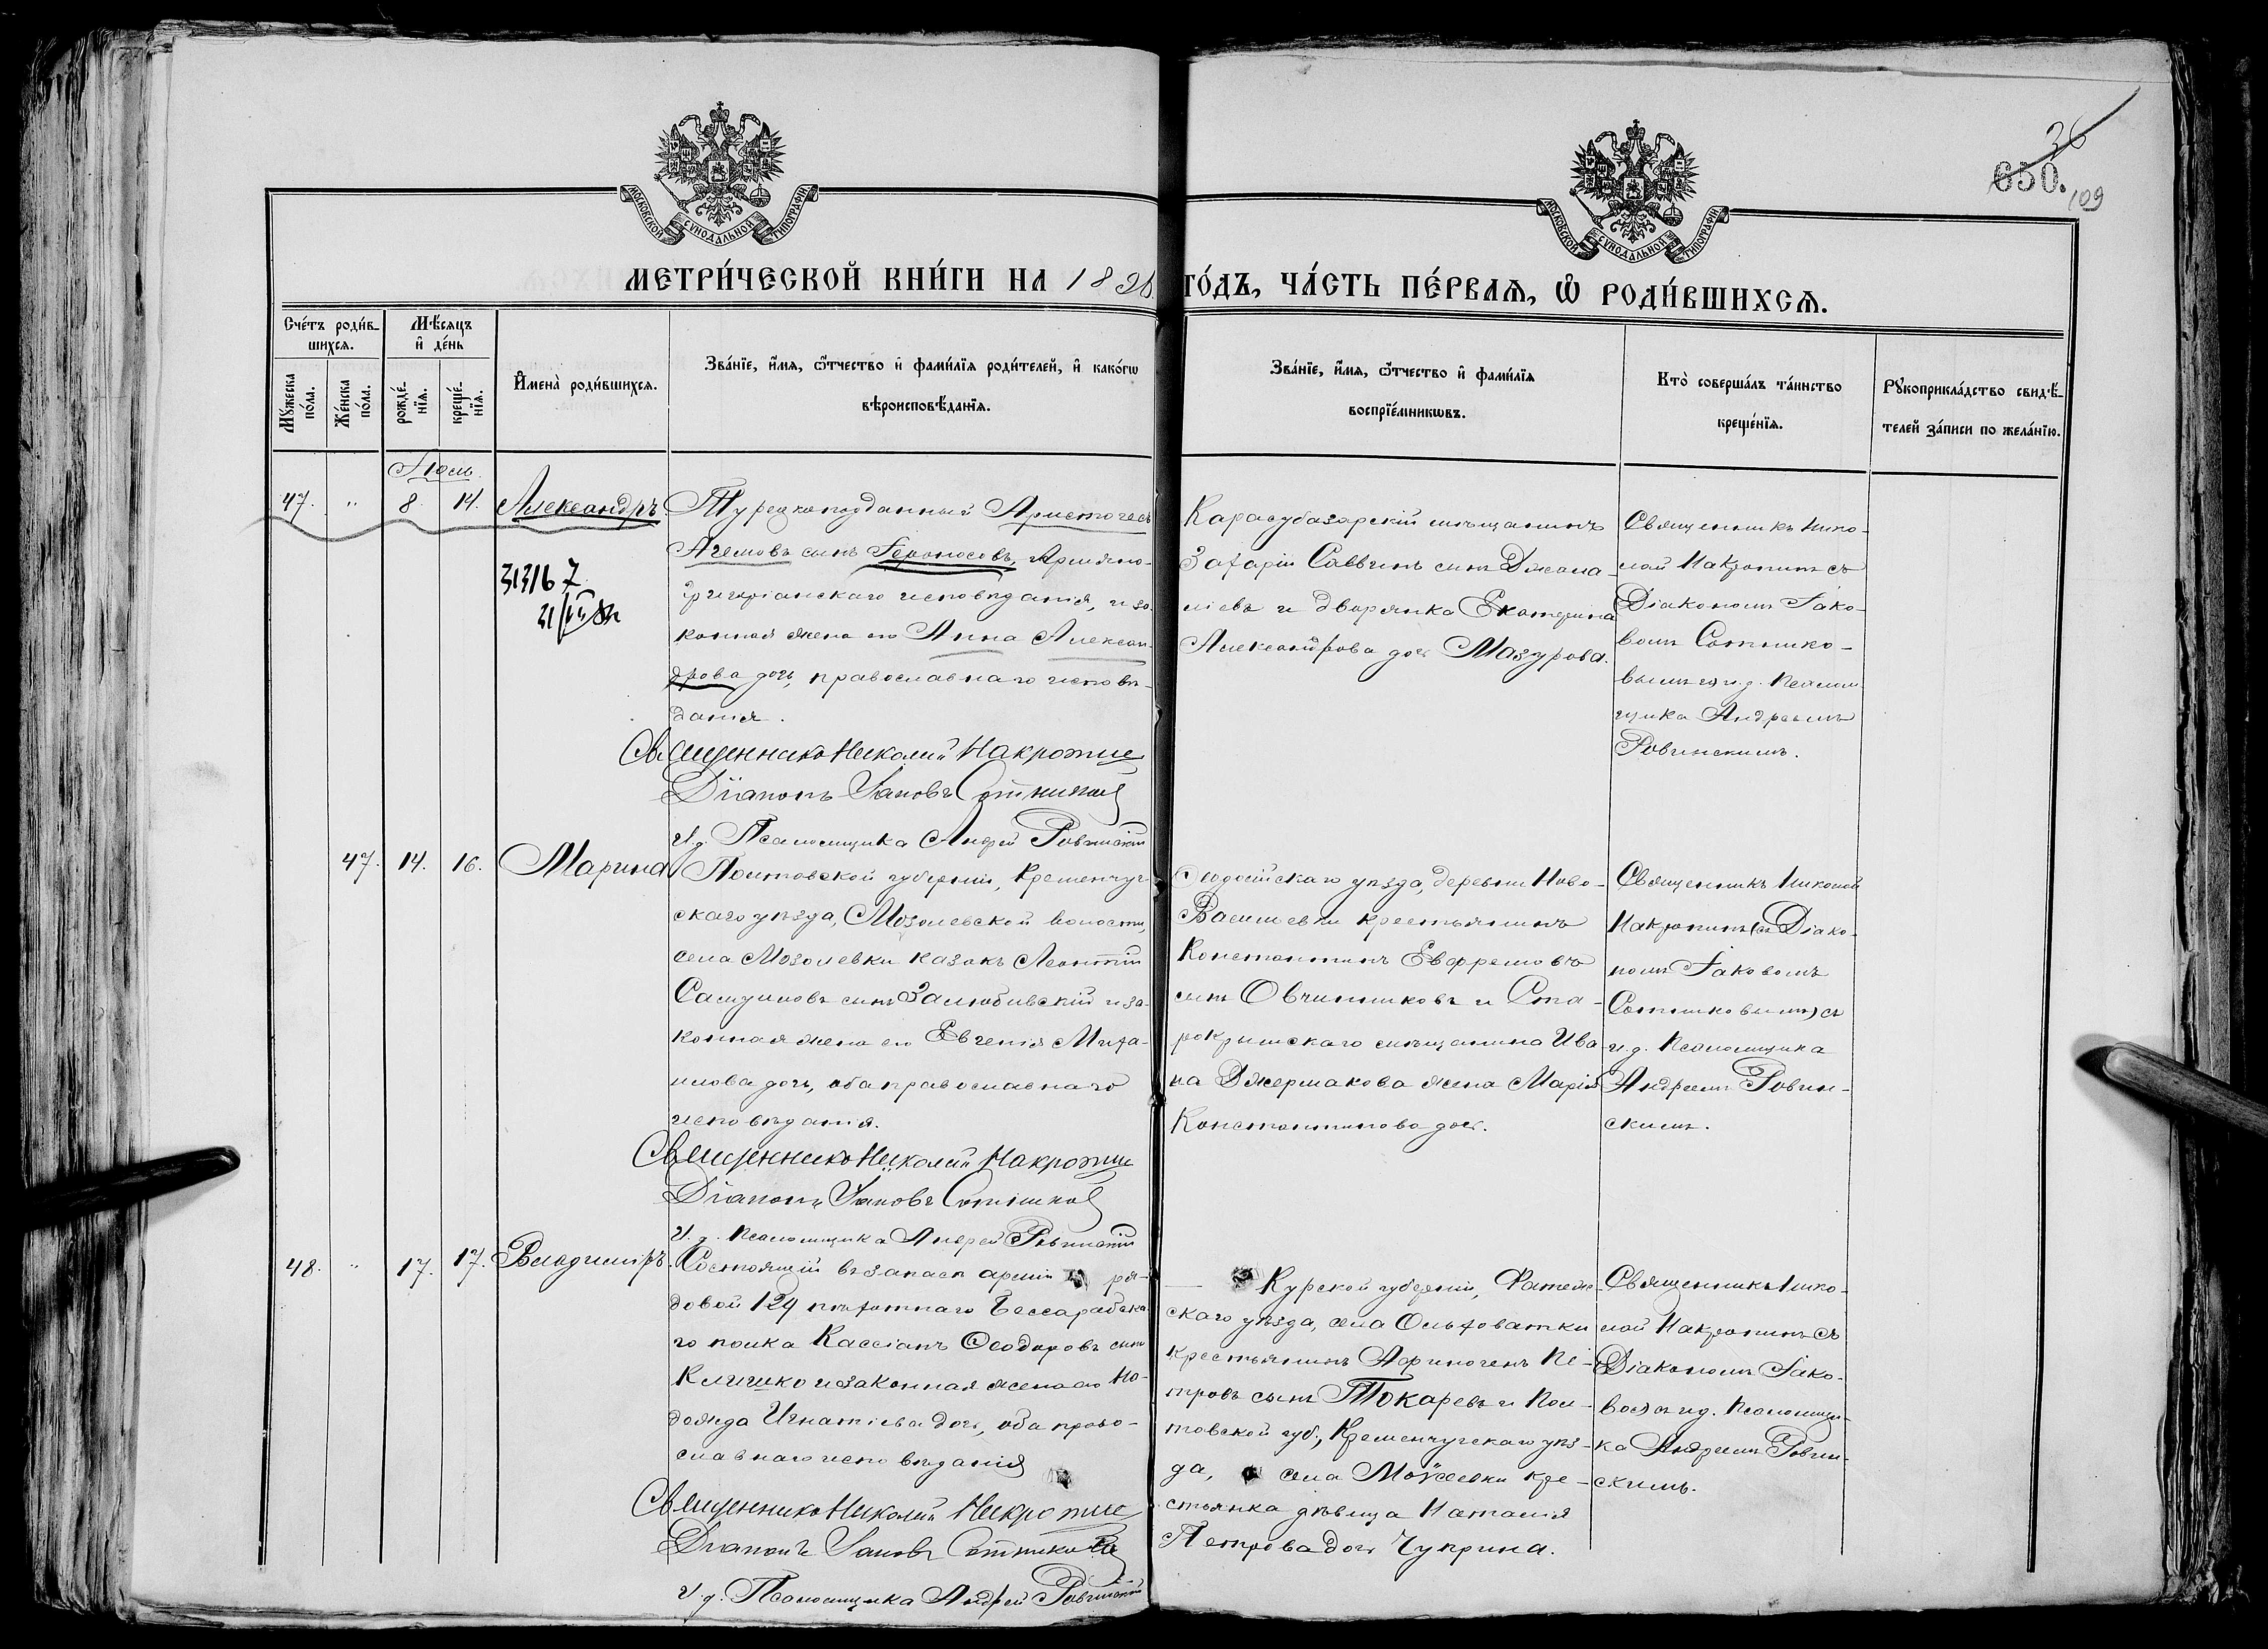 МОСКОВСКОЙ СѴНОДАЛЬНОЙ ТИПОГРАФІИ
МОСКОВСКОЙ СѴНОДАЛЬНОЙ ТИПОГРАФІИ
36
650.
109
МЕТРИ́ЧЕСКОЙ КНИ́ГИ НА 1896 ГО́ДЪ, ЧА́СТЬ ПЕ́РВАѦ, Ѡ҆ РОДИ́ВШИХСѦ.
Сче́тъ роди́в-
шихсѧ.
Мꙋ́жеска по́ла.
Же́нска по́ла.
Мѣ́сѧцъ
и҆ де́нь
рожде́-
нїѧ.
креще́-
нїѧ.
И҆мена̀ роди́вшихсѧ.
Зва́нїе, и҆́мѧ, ѻ҆́тчество и҆ фами́лїѧ роди́телей, и҆ како́гѡ
вѣроисповѣ́данїѧ.
Зва́нїе, и҆́мѧ, ѻ҆́тчество и҆ фами́лїѧ
воспрїе́мникѡвъ.
Кто̀ соверша́лъ та́инство
креще́нїѧ.
Рꙋкоприкла́дство свидѣ́-
телей за́писи по жела́нїю.
Іюль.
47. " 8. 14. Александръ
Турецкоподданный Аристогесъ
Агемовъ сынъ Героносовъ, Армяно-
григоріанскаго исповѣданія, и за-
конная жена его Анна Алексан-
дрова дочь, православнаго исповѣ-
данія.
Священникъ Николай Накропинъ
Діаконъ Іаковъ Сотниковъ
И. д. Псаломщика Андрей Ровинскій
Карасубазарскій мѣщанинъ
Захарій Саввинъ сынъ Джама-
ліевъ и дворянка Екатерина
Александрова дочь Мазурова.
Священникъ Нико-
лай Накропинъ съ
Діакономъ Іако-
вомъ Сотнико-
вымъ и и. д. Псалом-
щика Андреемъ
Ровинскимъ.
47. 14. 16. Марина
Полтавской губерніи, Кременчуг-
скаго уѣзда, Мозолевской волости,
села Мозолевки казакъ Леонтій
сынъ Залюбивскій и за-
конная жена его Евгенія Миха-
илова дочь, оба православнаго
исповѣданія.
Священникъ Николай Накропинъ
Діаконъ Іаковъ Сотниковъ
И. д. Псаломщика Андрей Ровинскій
Ѳеодосійскаго уѣзда, деревни Ново-
Васильевки крестьянинъ
Константинъ Евфремовъ
сынъ Овчинниковъ и Ста-
рокрымскаго мѣщанина Ива-
на Джермакова жена Марія
Константинова дочь.
Священникъ Николай
Накропинъ съ Діако-
номъ Іаковомъ
Сотниковымъ съ
и. д. Псаломщика
Андреемъ Ровин-
скимъ.
48. " 17. 17. Владиміръ.
Состоящій въ запасѣ арміи ря-
довой 129 пѣхотнаго Бессарабска-
го полка Кассіанъ Ѳеодоровъ сынъ
Клишко и законная жена его На-
дежда Игнатіева дочь, оба право-
славнаго исповѣданія
Священникъ Николай Накропинъ
Діаконъ Іаковъ Сотниковъ
И. д. Псаломщика Андрей Ровинскій
Курской губерніи, Фатеж-
скаго уѣзда, села Ольховатки
крестьянинъ Афиногенъ Пе-
тровъ сынъ Токаревъ и Пол-
тавской губ., Кременчугскаго уѣз-
да, села кре-
стьянка дѣвица Наталія
Петрова дочь Чуприна.
Священникъ Нико-
лай Накропинъ съ
Діакономъ Іако-
и. д. Псаломщи-
ка Андреемъ Ровин-
скимъ.